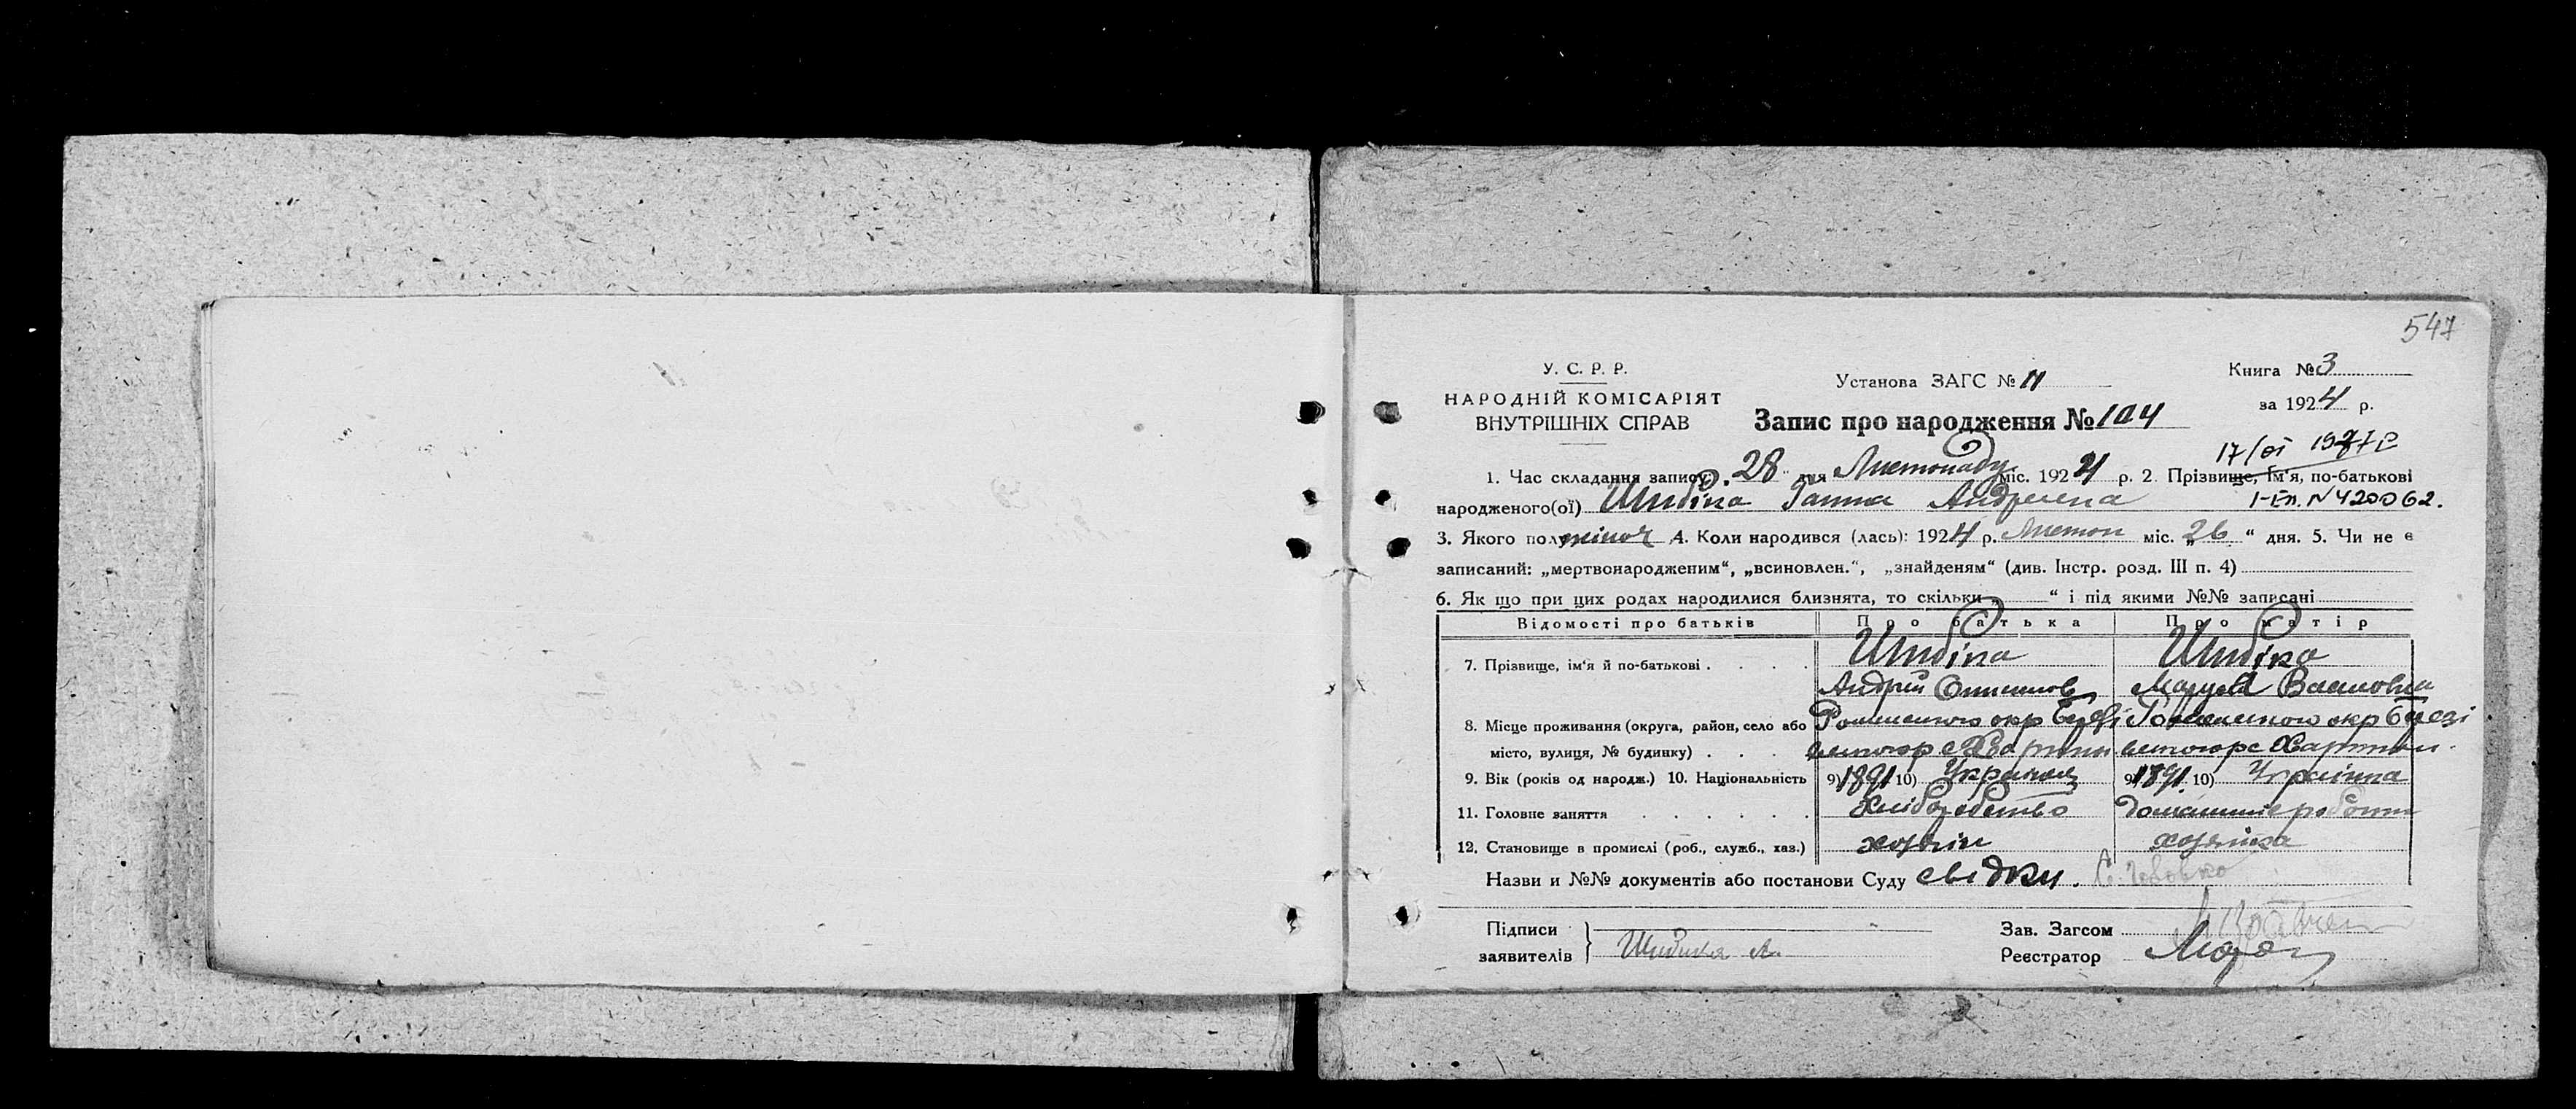 547
У. С. Р. Р.
НАРОДНІЙ КОМІСАРІЯТ
ВНУТРІШНІХ СПРАВ
Установа ЗАГС № 11
Книга № 3
за 1924 р.
Запис про народження № 104
1. Час складання запису: „28“ дня Листопаду міс. 1924 р. 2 Прізвище, Ім'я, по-батькові
народженого(ої) Ганна Андреевна № 420062.
3. Якого полу жіноч 4. Коли народився (лась): 1924 р. Листоп міс. „26“ дня. 5. Чи не є
записаний: „мертвонародженим“, „всиновлен.“, „знайденям“ (див. Інстр. розд. III п. 4)
6. Як що при цих родах народилися близнята, то скільки „ “ і під якими №№ записані
Відомості про батьків Про батька Про матір
7. Прізвище, ім'я й по-батькові
Андрій
8. Місце проживання (округа, район, село або Роменського окр Роменського окр
місто, вулиця, № будинку)
9. Вік (років од народж.) 10. Національність 9) 1891 10) Українец 9) 1891 10) Українка
11. Головне заняття Хліборобство домашние роботи
12. Становище в промислі (роб., служб., хаз.) хозяін хозяіка
Назви и №№ документів або постанови Суду свідки.
Підписи
заявителів
Зав. Загсом
Реєстратор